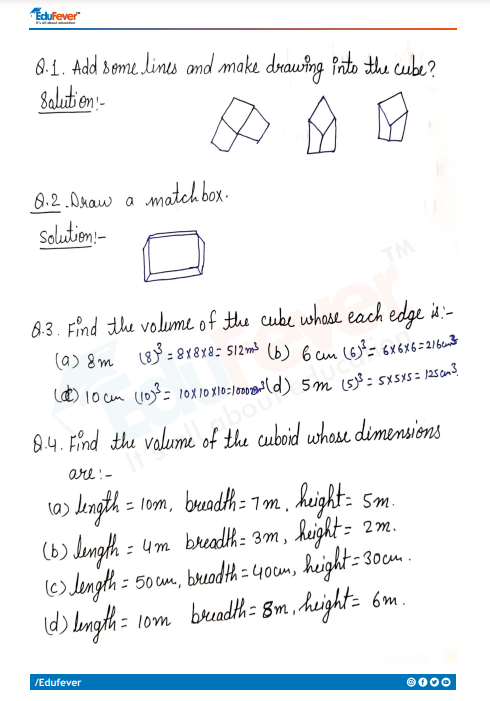 EduFever
It's all about education
Q.1. Add some lines and make drawing into the cube?
Solution:-
Q.2. Draw a matchbox.
Solution:-
Q.3. Find the volume of the cube whose each edge is:-
(a) 8m (8)³= 8x8x8= 512m³ (b) 6 cm (6)³= 6x6x6=216cm³
(c) 10 cm (10)³= 10x10x10=1000cm³ (d) 5 m (5)³ = 5x5x5 = 125cm³.
Q.4. Find the volume of the cuboid whose dimensions
are:-
(a) length = 10m, breadth = 7m, height = 5m.
(b) length = 4m breadth = 3m, height = 2m.
(c) length = 50cm, breadth = 40cm, height = 30cm.
(d) length = 10m breadth = 8m, height = 6m.
EduFever™
It's all about education
/Edufever